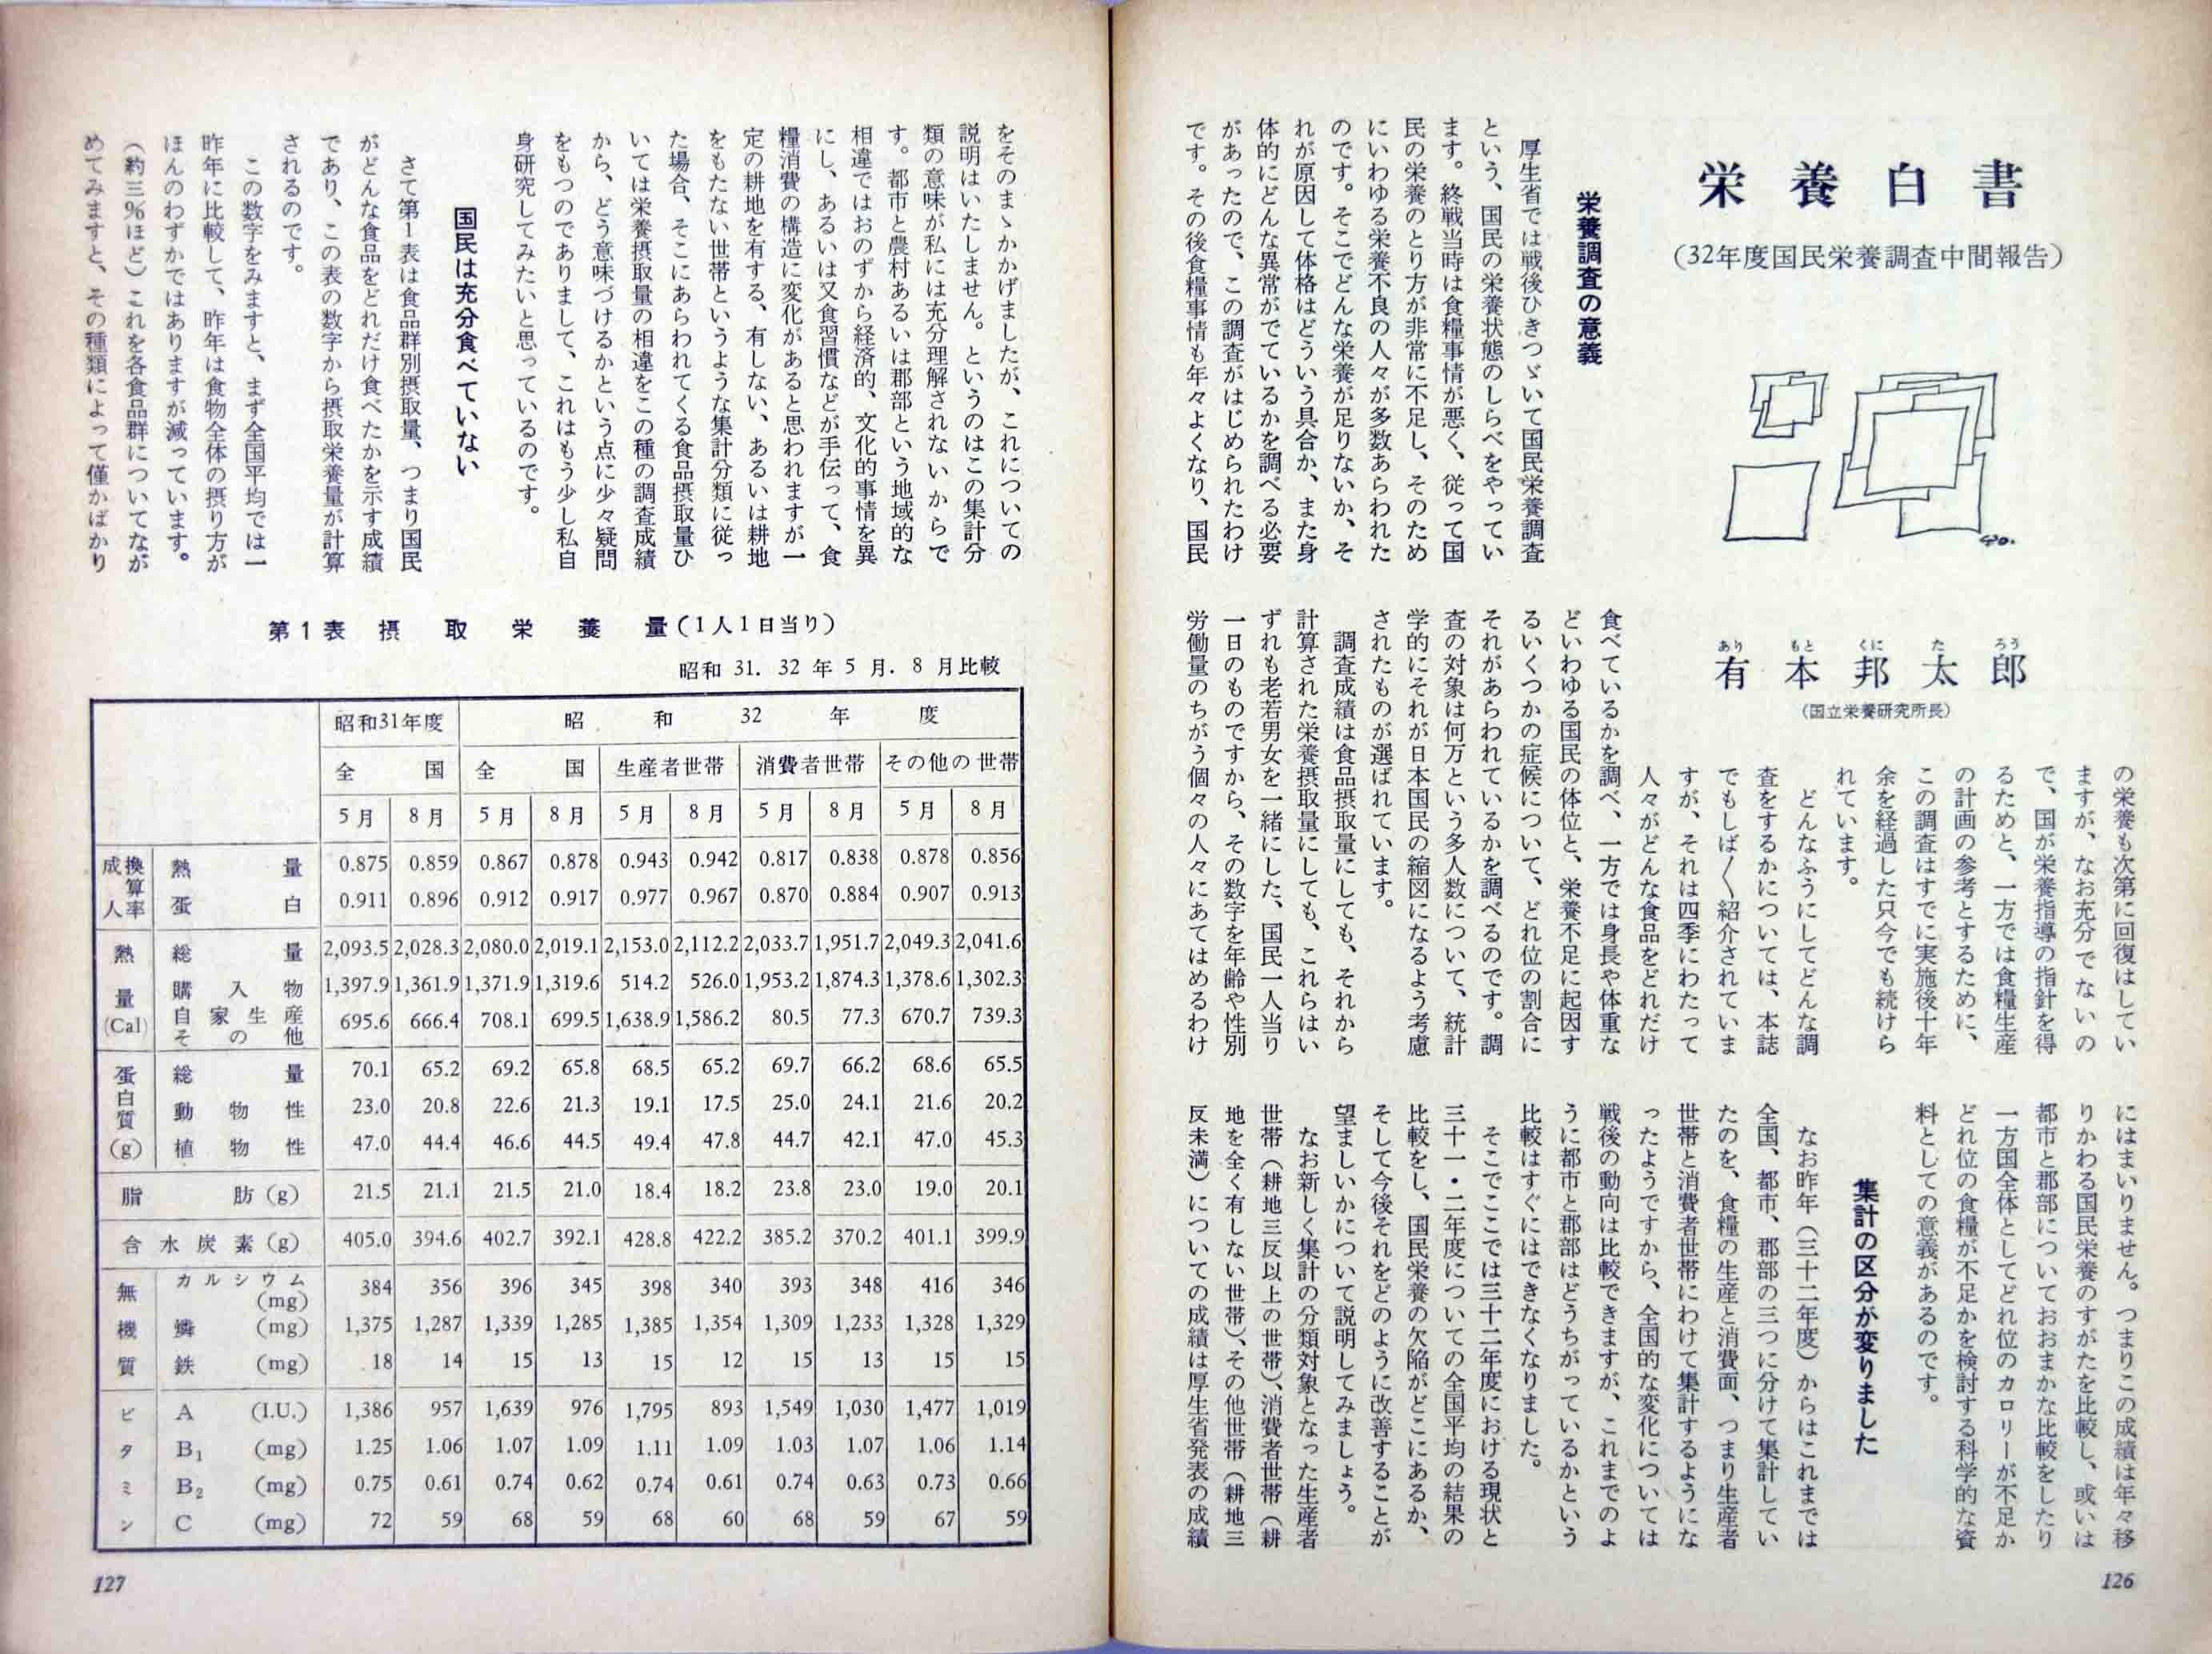 栄養白書
(32年度国民栄養調査中間報告)
有本邦太郎
あり もと くに た ろう
(国立栄養研究所長)
栄養調査の意義
厚生省では戦後ひきつゞいて国民栄養調査
という、国民の栄養状態のしらべをやってい
ます。終戦当時は食糧事情が悪く、従って国
民の栄養のとり方が非常に不足し、そのため
にいわゆる栄養不良の人々が多数あらわれた
のです。そこでどんな栄養が足りないか、そ
れが原因して体格はどういう具合か、また身
体的にどんな異常がでているかを調べる必要
があったので、この調査がはじめられたわけ
です。その後食糧事情も年々よくなり、国民
の栄養も次第に回復はしてい
ますが、なお充分でないの
で、国が栄養指導の指針を得
るためと、一方では食糧生産
の計画の参考とするために、
この調査はすでに実施後十年
余を経過した只今でも続けら
れています。
どんなふうにしてどんな調
査をするかについては、本誌
でもしば〱紹介されていま
すが、それは四季にわたって
人々がどんな食品をどれだけ
食べているかを調べ、一方では身長や体重な
どいわゆる国民の体位と、栄養不足に起因す
るいくつかの症候について、どれ位の割合に
それがあらわれているかを調べるのです。調
査の対象は何万という多人数について、統計
学的にそれが日本国民の縮図になるよう考慮
されたものが選ばれています。
調査成績は食品摂取量にしても、それから
計算された栄養摂取量にしても、これらはい
ずれも老若男女を一緒にした、国民一人当り
一日のものですから、その数字を年齢や性別
労働量のちがう個々の人々にあてはめるわけ
にはまいりません。つまりこの成績は年々移
りかわる国民栄養のすがたを比較し、或いは
都市と郡部についておおまかな比較をしたり
一方国全体としてどれ位のカロリーが不足か
どれ位の食糧が不足かを検討する科学的な資
料としての意義があるのです。
集計の区分が変りました
なお昨年(三十二年度)からはこれまでは
全国、都市、郡部の三つに分けて集計してい
たのを、食糧の生産と消費面、つまり生産者
世帯と消費者世帯にわけて集計するようにな
ったようですから、全国的な変化については
戦後の動向は比較できますが、これまでのよ
うに都市と郡部はどうちがっているかという
比較はすぐにはできなくなりました。
そこでここでは三十二年度における現状と
三十一・二年度についての全国平均の結果の
比較をし、国民栄養の欠陥がどこにあるか、
そして今後それをどのように改善することが
望ましいかについて説明してみましょう。
なお新しく集計の分類対象となった生産者
世帯(耕地三反以上の世帯)、消費者世帯(耕
地を全く有しない世帯)、その他世帯(耕地三
反未満)についての成績は厚生省発表の成績
126
をそのまゝかかげましたが、これについての
説明はいたしません。というのはこの集計分
類の意味が私には充分理解されないからで
す。都市と農村あるいは郡部という地域的な
相違ではおのずから経済的、文化的事情を異
にし、あるいは又食習慣などが手伝って、食
糧消費の構造に変化があると思われますが一
定の耕地を有する、有しない、あるいは耕地
をもたない世帯というような集計分類に従っ
た場合、そこにあらわれてくる食品摂取量ひ
いては栄養摂取量の相違をこの種の調査成績
から、どう意味づけるかという点に少々疑問
をもつのでありまして、これはもう少し私自
身研究してみたいと思っているのです。
国民は充分食べていない
さて第1表は食品群別摂取量、つまり国民
がどんな食品をどれだけ食べたかを示す成績
であり、この表の数字から摂取栄養量が計算
されるのです。
この数字をみますと、まず全国平均では一
昨年に比較して、昨年は食物全体の摂り方が
ほんのわずかではありますが減っています。
(約三％ほど)これを各食品群についてなが
めてみますと、その種類によって僅かばかり
第1表 摂取栄養量(1人1日当り)
昭和 31. 32 年 5 月. 8 月比較
昭和31年度 昭和32年度
全国 全国 生産者世帯 消費者世帯 その他の世帯
5月 8月 5月 8月 5月 8月 5月 8月 5月 8月
成人換算率 熱量 0.875 0.859 0.867 0.878 0.943 0.942 0.817 0.838 0.878 0.856
蛋白 0.911 0.896 0.912 0.917 0.977 0.967 0.870 0.884 0.907 0.913
熱量(Cal) 総量 2,093.5 2,028.3 2,080.0 2,019.1 2,153.0 2,112.2 2,033.7 1,951.7 2,049.3 2,041.6
購入物 1,397.9 1,361.9 1,371.9 1,319.6 514.2 526.0 1,953.2 1,874.3 1,378.6 1,302.3
自家生産その他 695.6 666.4 708.1 699.5 1,638.9 1,586.2 80.5 77.3 670.7 739.3
蛋白質(g) 総量 70.1 65.2 69.2 65.8 68.5 65.2 69.7 66.2 68.6 65.5
動物性 23.0 20.8 22.6 21.3 19.1 17.5 25.0 24.1 21.6 20.2
植物性 47.0 44.4 46.6 44.5 49.4 47.8 44.7 42.1 47.0 45.3
脂肪(g) 21.5 21.1 21.5 21.0 18.4 18.2 23.8 23.0 19.0 20.1
含水炭素(g) 405.0 394.6 402.7 392.1 428.8 422.2 385.2 370.2 401.1 399.9
無機質 カルシウム(mg) 384 356 396 345 398 340 393 348 416 346
燐(mg) 1,375 1,287 1,339 1,285 1,385 1,354 1,309 1,233 1,328 1,329
鉄(mg) 18 14 15 13 15 12 15 13 15 15
ビタミン A(I.U.) 1,386 957 1,639 976 1,795 893 1,549 1,030 1,477 1,019
B₁(mg) 1.25 1.06 1.07 1.09 1.11 1.09 1.03 1.07 1.06 1.14
B₂(mg) 0.75 0.61 0.74 0.62 0.74 0.61 0.74 0.63 0.73 0.66
C(mg) 72 59 68 59 68 60 68 59 67 59
127